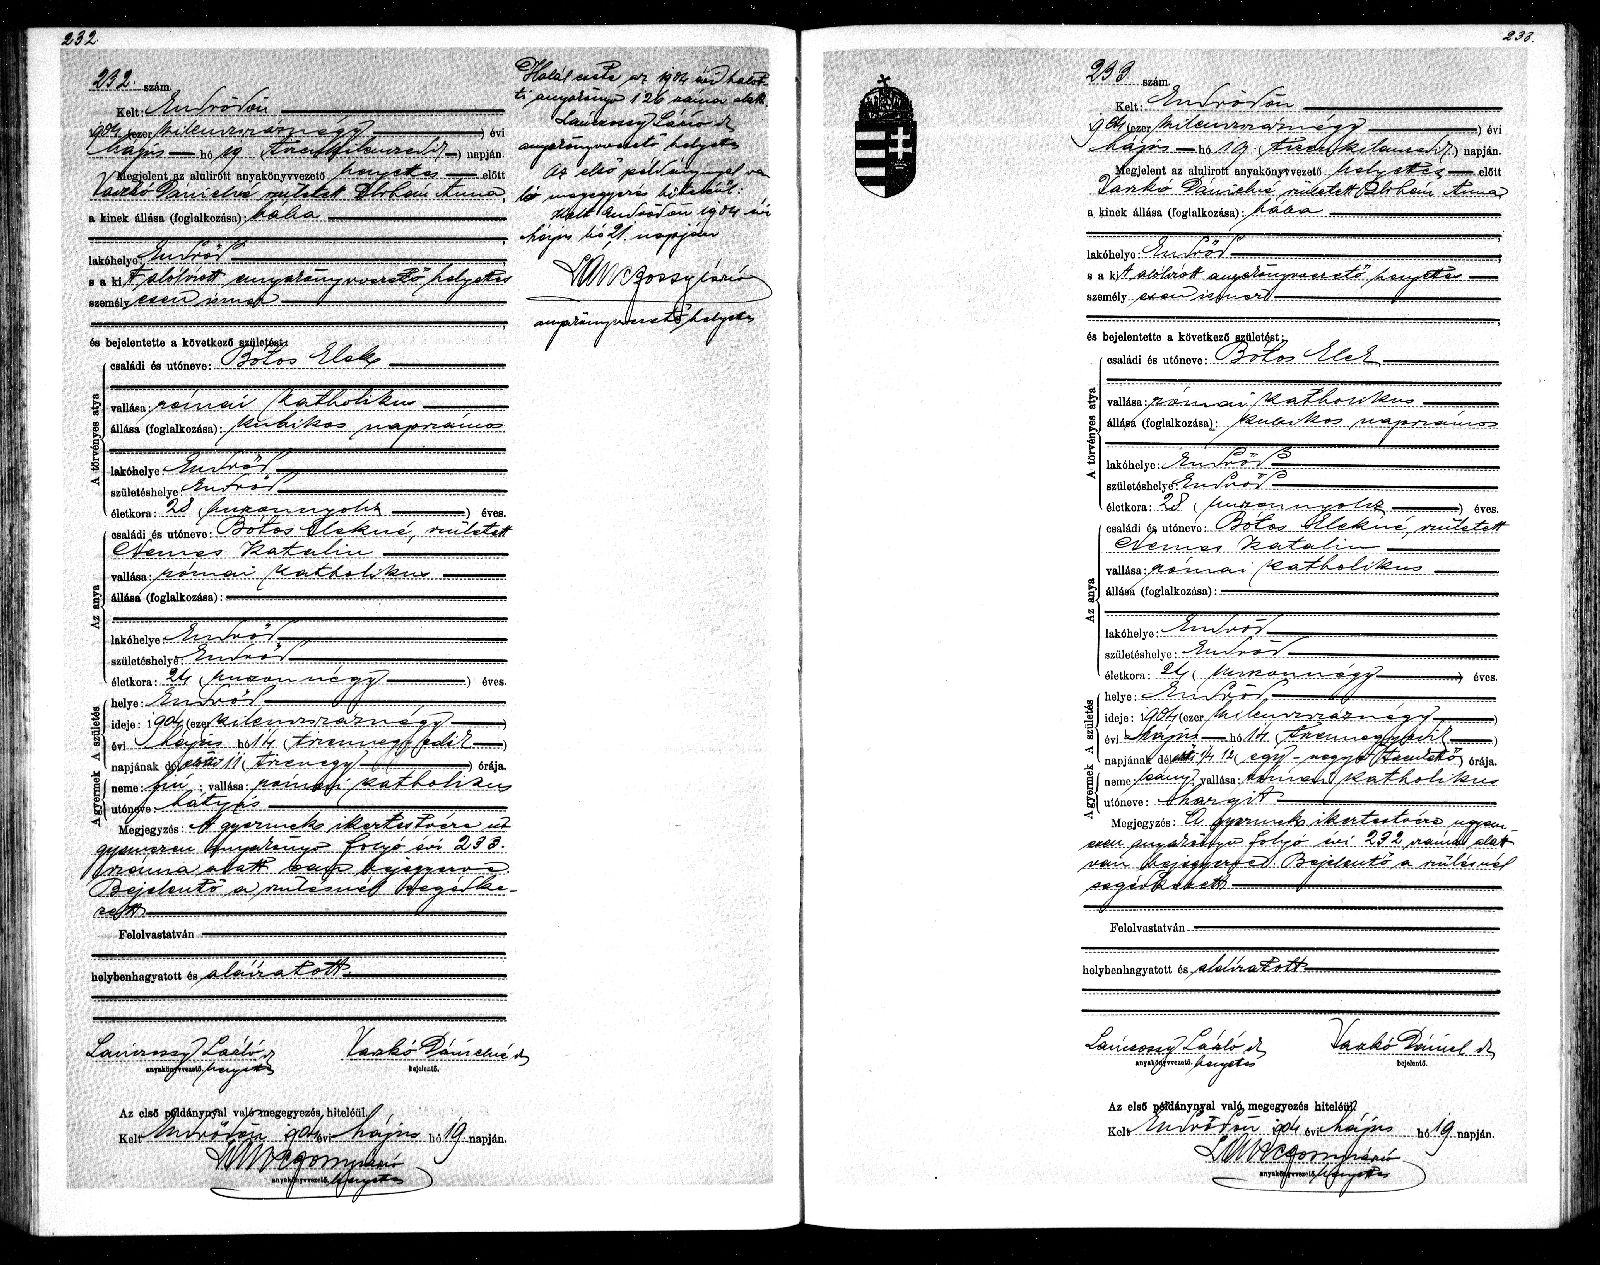 232
232. szám.
Kelt: Endrődön
904 (ezer kilenczszáznégy) évi
Május hó 19 (tizenkilenczedik) napján.
Megjelent az alulirott anyakönyvvezető helyettes előtt
Vaskó Dánielné született Anna,
a kinek állása (foglalkozása): bába
lakóhelye Endrőd
s a kit alólirott anyakönyvvezető helyettes
személyesen ismer
és bejelentette a következő születést:
A törvényes atya
családi és utóneve: Bótos Elek
vallása: római katholikus
állása (foglalkozása): kubikos napszámos
lakóhelye: Endrőd
születéshelye Endrőd
életkora: 28 (huszonnyolcz) éves.
Az anya
családi és utóneve: Bótos Elekné, született
Nemes Katalin
vallása: római katholikus
állása (foglalkozása):
lakóhelye: Endrőd
születéshelye: Endrőd
életkora: 24 (huszonnégy) éves.
A gyermek A születés
helye: Endrőd
ideje: 1904 (ezer kilenczszáznégy)
évi Május hó 14 (tizennegyedik)
napjának dél előtti 11 (tizenegy) órája.
neme: fiú; vallása: római katholikus
utóneve: Mátyás
Megjegyzés: A gyermek ikertestvére u
gyanezen anyakönyv folyó évi 233.
száma alatt van bejegyezve.
Bejelentő a szülésnél segédke-
zett
Felolvastatván
helybenhagyatott és aláiratott
Lánczossy László
anyakönyvvezető, helyettes
Vaskó Dánielné
bejelentő.
Az első példánynyal való megegyezés hiteléül.
Kelt Endrődön 904 évi Május hó 19 napján.
anyakönyvvezető, helyettes
Halál esete az 1904 évi halot-
ti anyakönyv 126 száma alatt.
Lánczossy László
anyakönyvvezető helyettes
Az első példánynyal va-
ló megegyezés hiteléül:
Kelt Endrődön 1904 évi
Május hó 21. napján
anyakönyvvezető helyettes
233.
233. szám.
Kelt: Endrődön
904 (ezer kilenczszáznégy) évi
Május hó 19 (tizenkilenczedik) napján.
Megjelent az alulirott anyakönyvvezető helyettes előtt
Vaskó Dánielné született Anna
a kinek állása (foglalkozása): bába
lakóhelye: Endrőd
s a kit alólirott anyakönyvvezető helyettes
személyesen ismer
és bejelentette a következő születést:
A törvényes atya
családi és utóneve: Bótos Elek
vallása: római katholikus
állása (foglalkozása): kubikos napszámos
lakóhelye: Endrőd
születéshelye: Endrőd
életkora: 28 (huszonnyolcz) éves.
Az anya
családi és utóneve: Bótos Elekné, született
Nemes Katalin
vallása: római katholikus
állása (foglalkozása):
lakóhelye: Endrőd
születéshelye: Endrőd
életkora: 24 (huszonnégy) éves.
A gyermek A születés
helye: Endrőd
ideje: 1904 (ezer kilenczszáznégy)
évi Május hó 14 (tizennegyedik)
napjának dél előtti 1/4 12 (egy-negyed tizenkettő) órája.
neme: leány; vallása: római katholikus
utóneve: Margit
Megjegyzés: A gyermek ikertestvére ugyan-
ezen anyakönyv folyó évi 232 száma alatt
van bejegyezve. Bejelentő a szülésnél
segédkezett
Felolvastatván
helybenhagyatott és aláiratott
Lánczossy László
anyakönyvvezető, helyettes
Vaskó Dániel
bejelentő.
Az első példánynyal való megegyezés hiteléül.
Kelt Endrődön 904 évi Május hó 19 napján.
anyakönyvvezető, helyettes